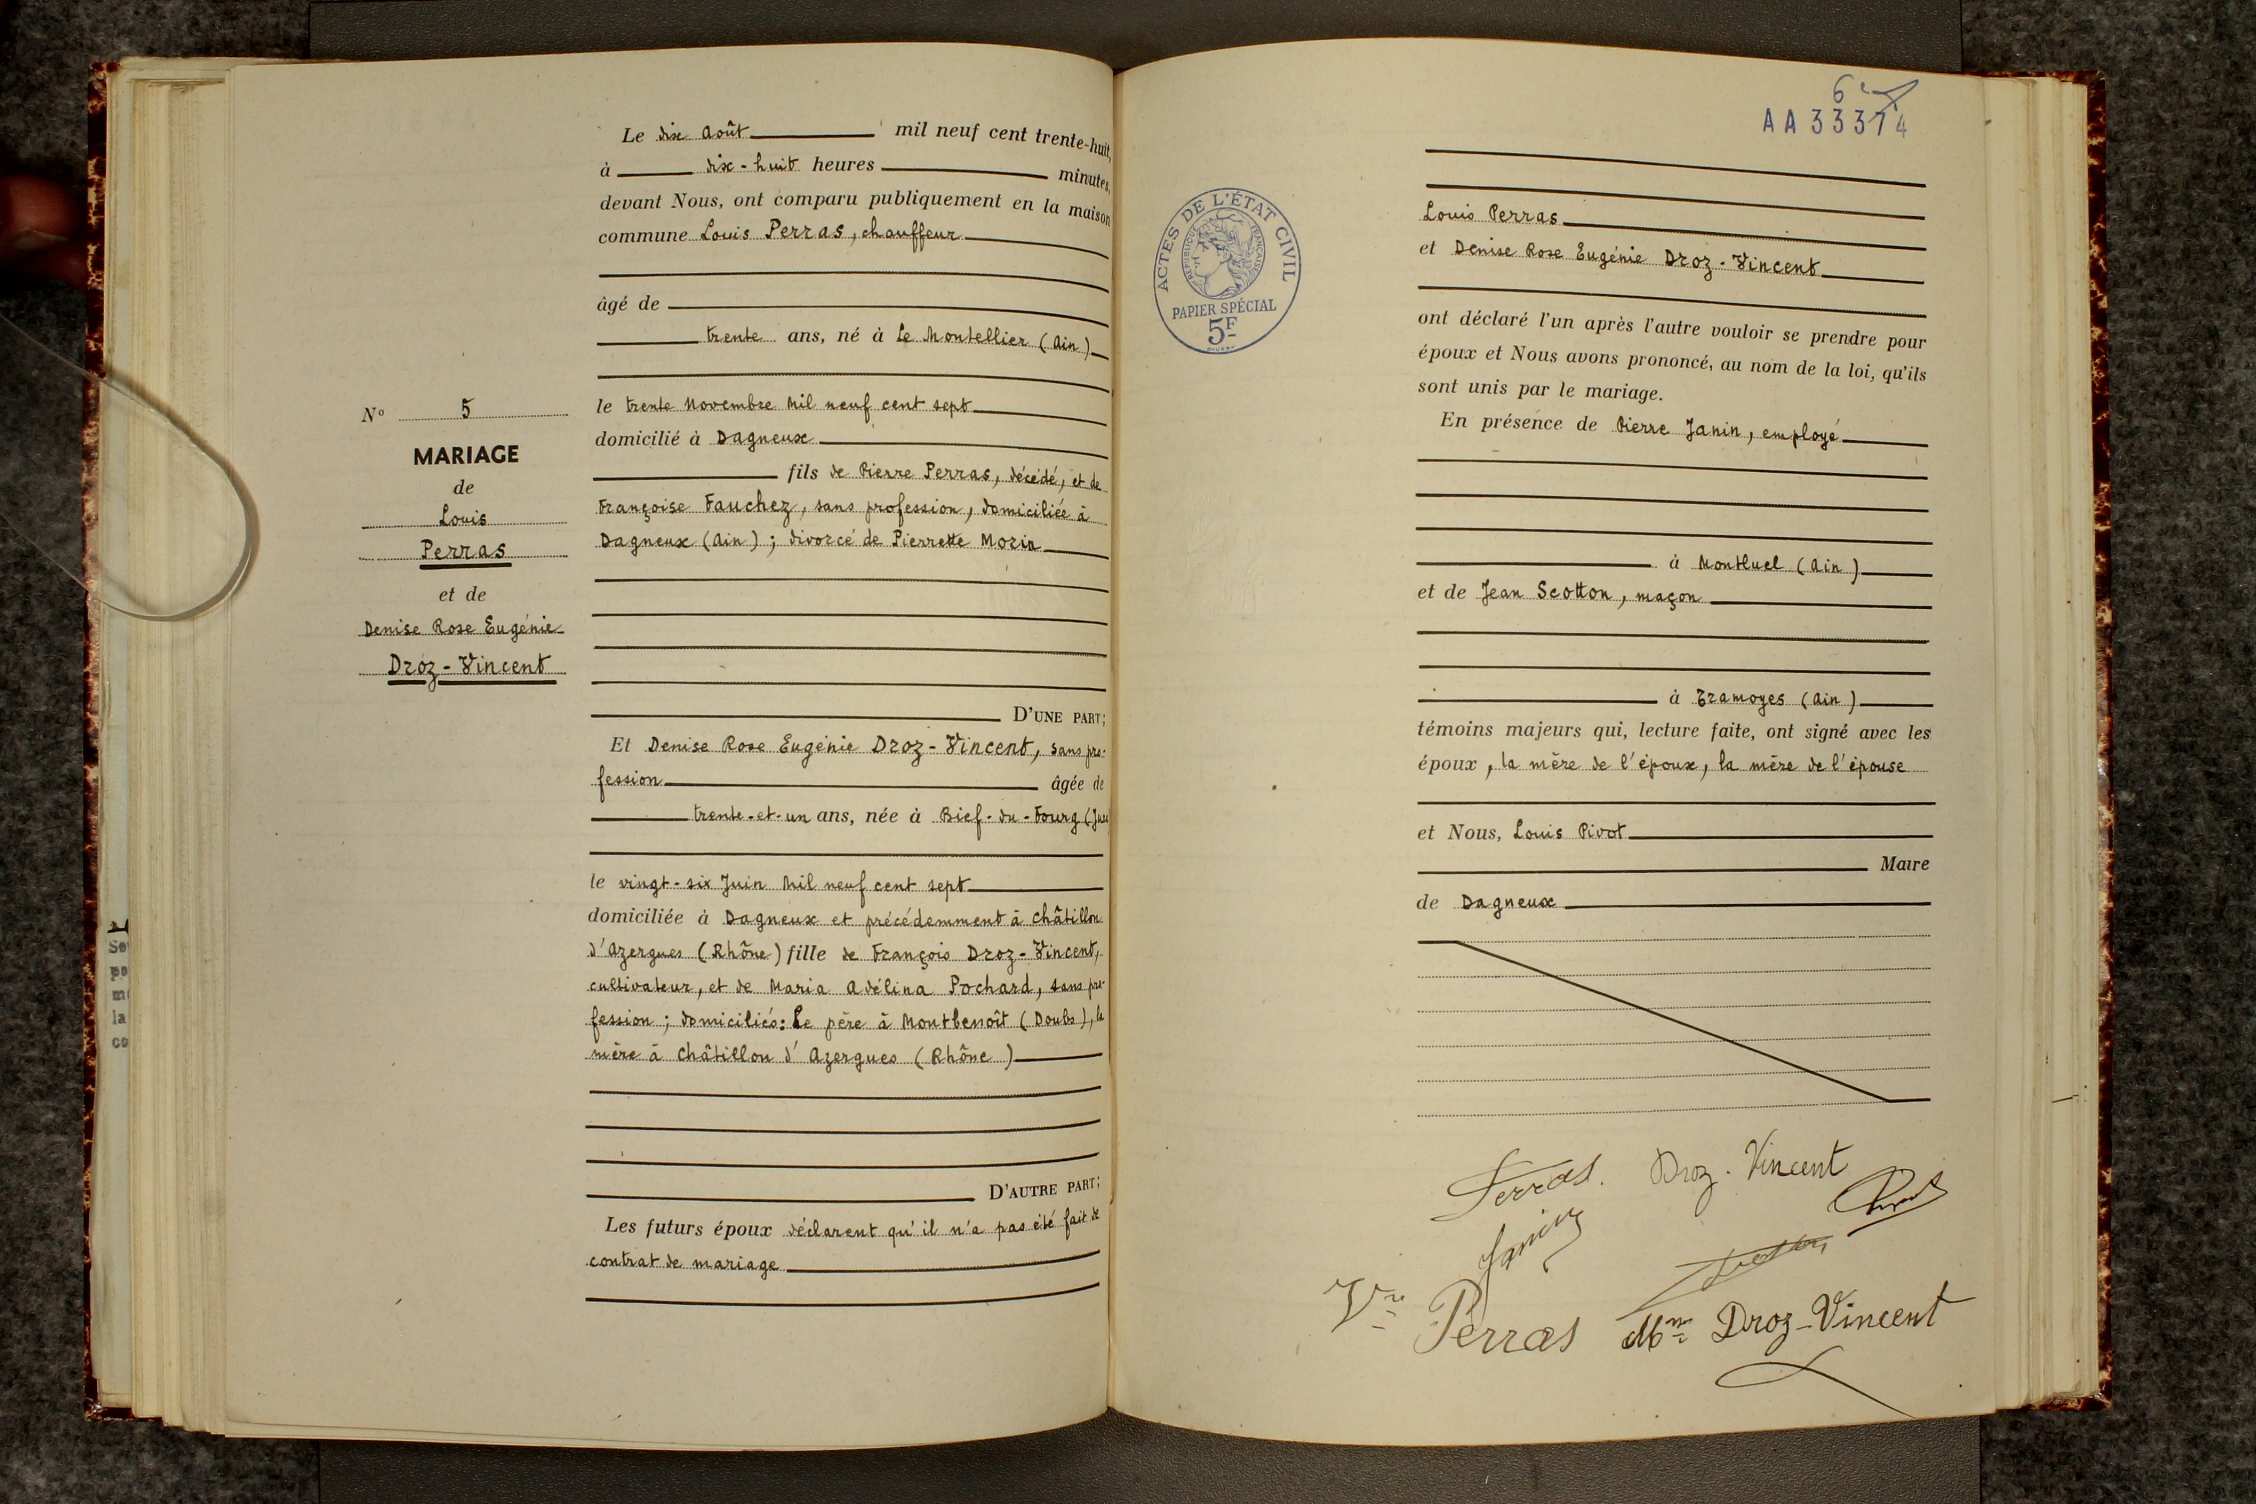 Nº 5
MARIAGE
de
Louis
Perras
et de
Denise Rose Eugénie
Droz-Vincent
Le dix Août mil neuf cent trente-huit,
à dix-huit heures minutes,
devant Nous, ont comparu publiquement en la maison
commune Louis Perras, chauffeur
âgé de
trente ans, né à Le Montellier (Ain)
le trente Novembre Mil neuf cent sept
domicilié à Dagneux
fils de Pierre Perras, décédé, et de
Françoise Fauchez, sans profession, domiciliée à
Dagneux (Ain) ; divorcé de Pierrette Morin
D'UNE PART;
Et Denise Rose Eugénie Droz-Vincent, sans pro-
fession âgée de
trente-et-un ans, née à Bief-du-Fourg (Jura
le vingt-six Juin Mil neuf cent sept
domiciliée à Dagneux et précédemment à Châtillon
d'Azergues (Rhône) fille de François Droz-Vincent,
cultivateur, et de Maria Adélina Pochard, sans pro-
fession ; domiciliés: Le père à Montbenoît (Doubs), la
mère à Châtillon d'Azergues (Rhône)
D'AUTRE PART;
Les futurs époux déclarent qu'il n'a pas été fait de
contrat de mariage
So
po
la
co
6e
AA 33374
ACTES DE L'ÉTAT CIVIL
RÉPUBLIQUE FRANÇAISE
PAPIER SPÉCIAL
5F
Louis Perras
et Denise Rose Eugénie Droz-Vincent
ont déclaré l'un après l'autre vouloir se prendre pour
époux et Nous avons prononcé, au nom de la loi, qu'ils
sont unis par le mariage.
En présence de Pierre Janin, employé
à Montluel (Ain)
et de Jean Scotton, maçon
à Tramoyes (Ain)
témoins majeurs qui, lecture faite, ont signé avec les
époux, la mère de l'époux, la mère de l'épouse
et Nous, Louis Pivot
Maire
de Dagneux
Perras. Droz-Vincent
Pivot
Janin
Scotton
Vve Perras Mme Droz-Vincent